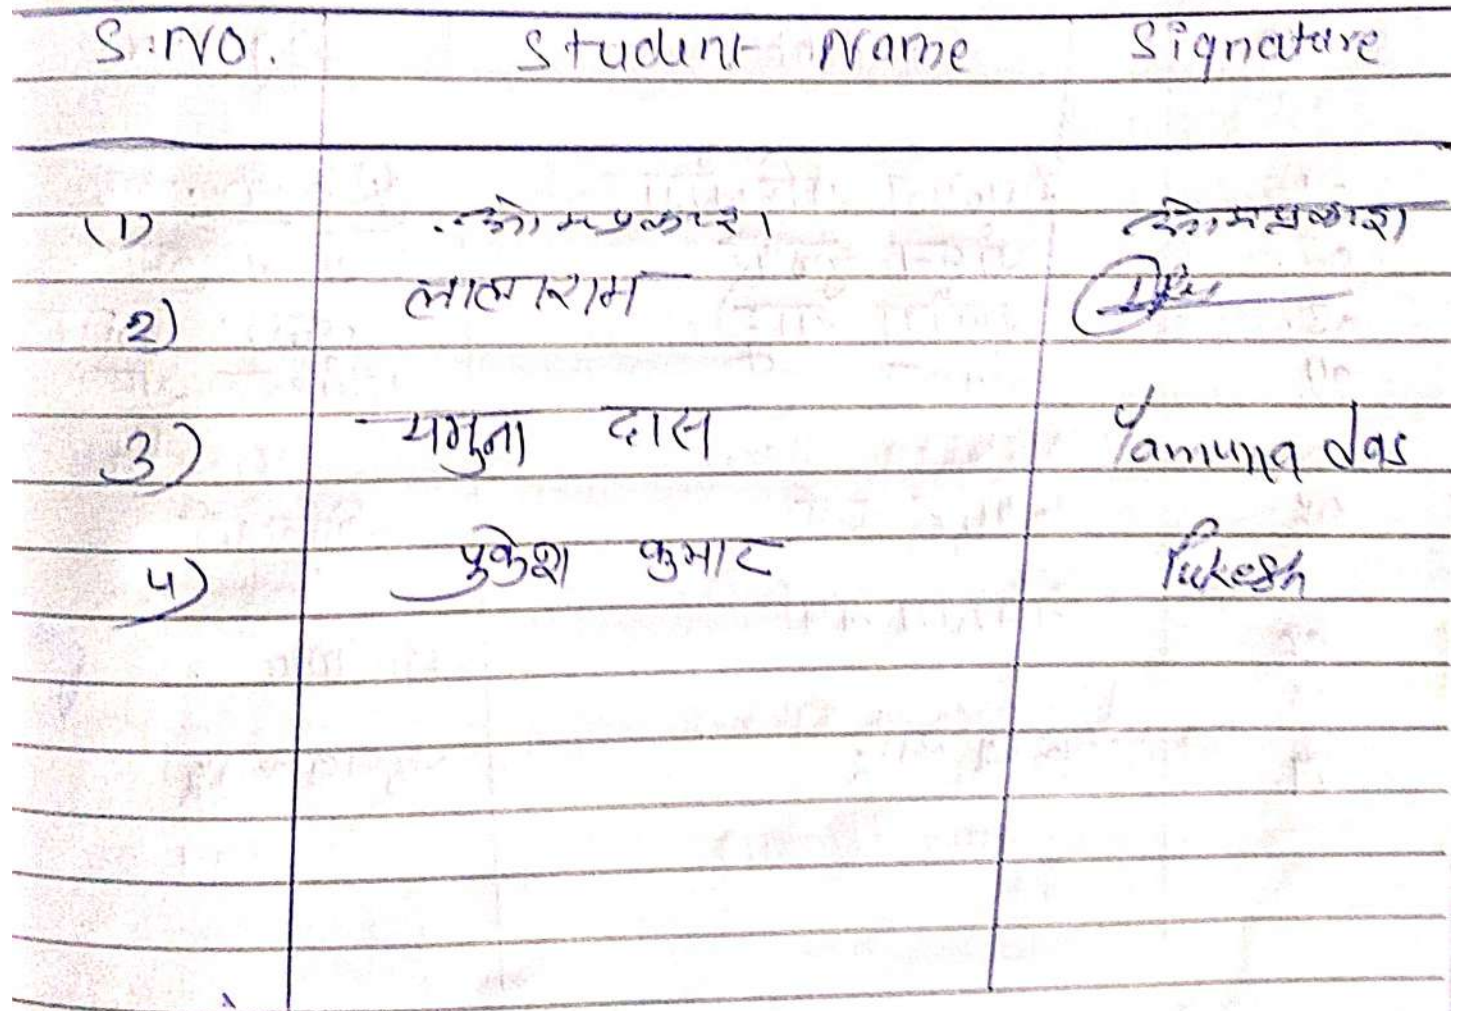 S.NO. Student Name Signature
(1) ओमप्रकाश ओमप्रकाश
2) लालाराम
3) यमुना दास Yamuna das
4) पुकेश कुमार Pukesh